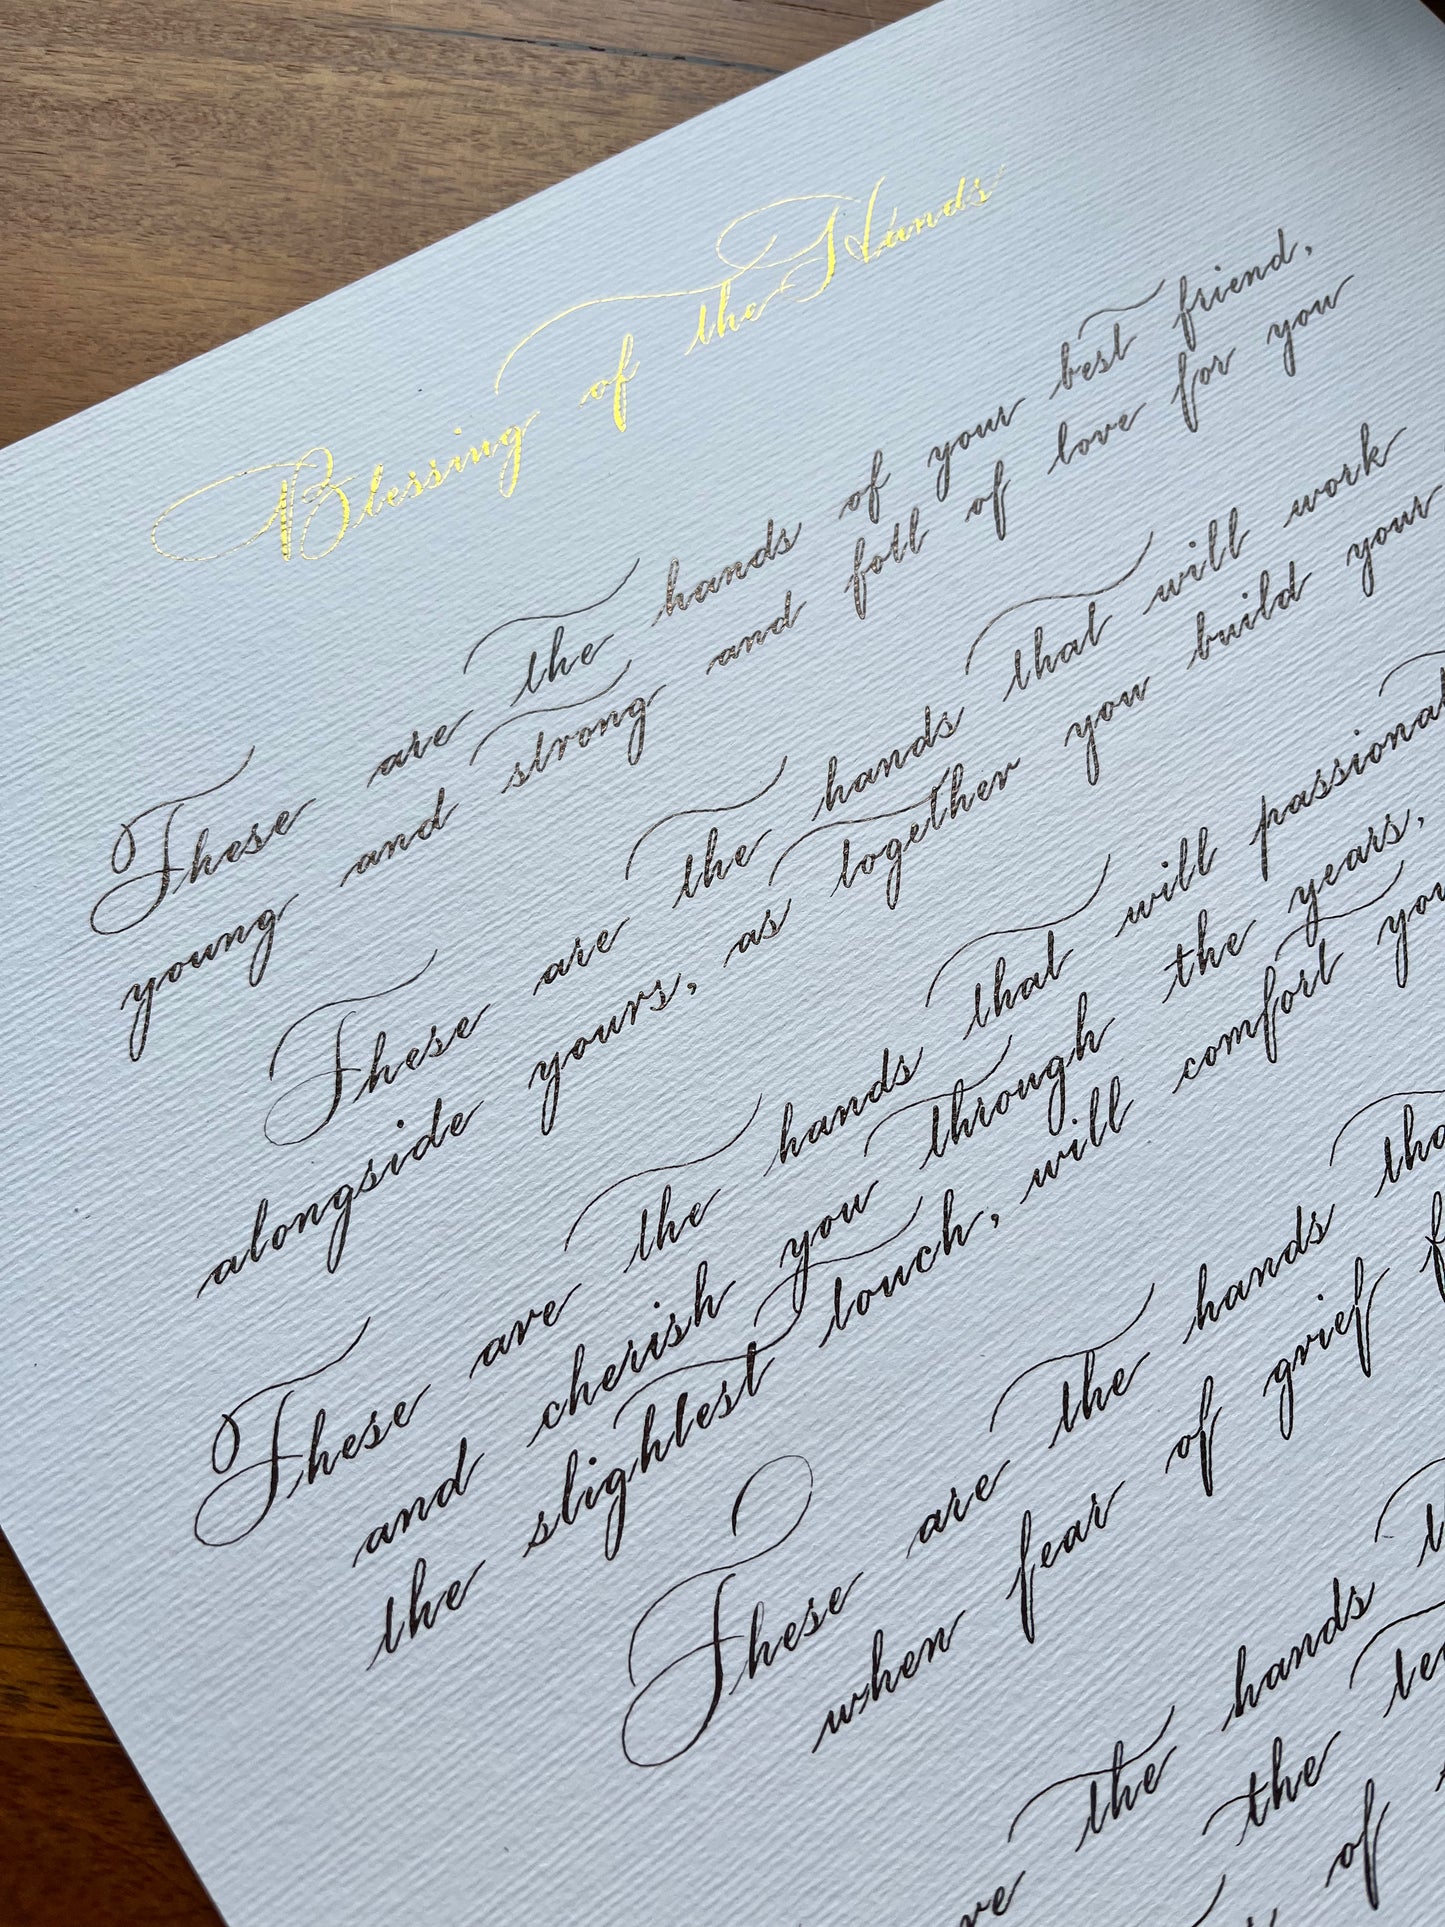 Blessing of the Hands
These are the hands of your best friend,
young and strong and foll of love for you
These are the hands that will work
alongside yours, as together you build your
These are the hands that will
and cherish you through the years,
the slightest touch, will comfort
These are the hands
when fear of grief
the hands
the
of